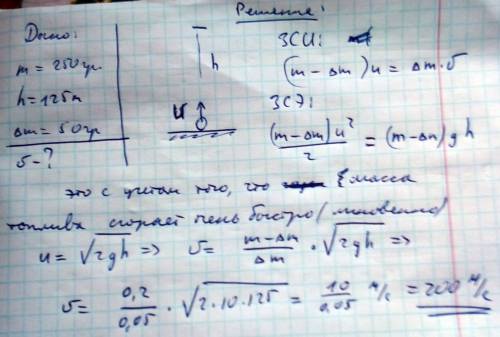 Решение:
Дано:
m = 250гр.
h = 125м
Δm = 50гр
υ - ?
h
u
ЗСИ:
(m - Δm) u = Δm · υ
ЗСЭ:
(m - Δm) u² / 2 = (m - Δm) g h
это с учетом того, что масса
топлива сгорает очень быстро (мгновенно)
u = √2gh => υ = (m - Δm) / Δm · √2gh =>
υ = 0,2 / 0,05 · √2·10·125 = 10 / 0,05 м/с = 200 м/с